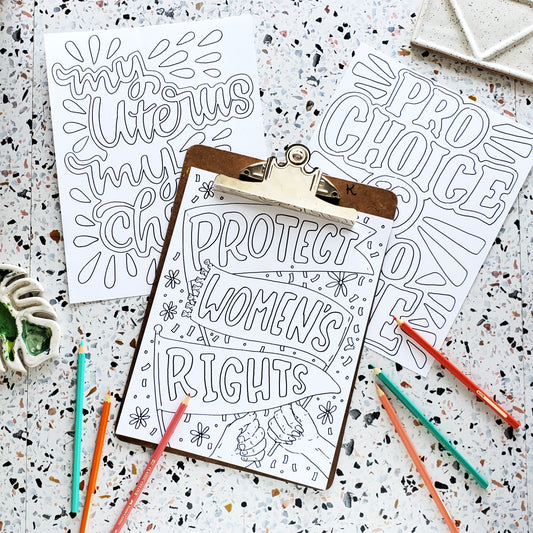 my
Uterus
my
PRO
CHOICE
PROTECT
WOMEN'S
RIGHTS